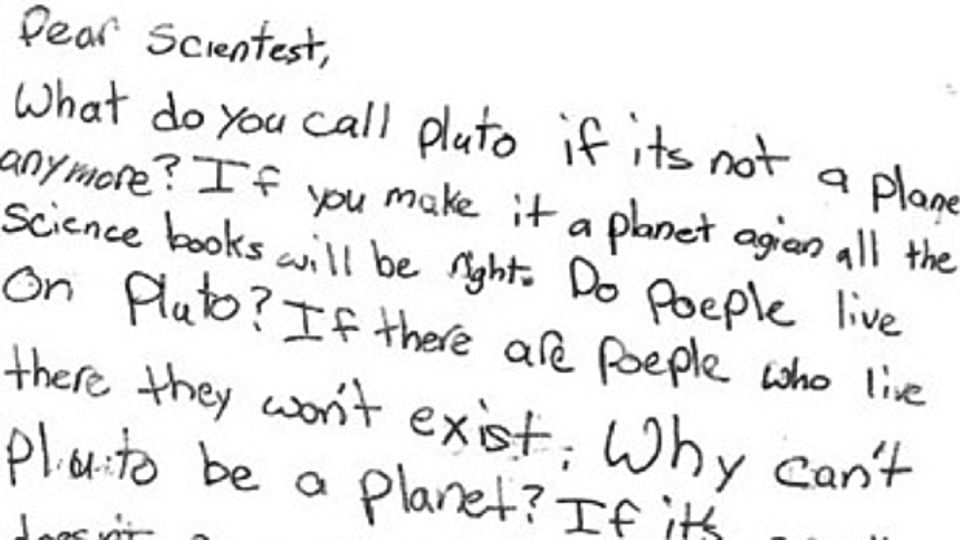 Dear Scientest,
What do you call pluto if its not a plane
anymore? If you make it a planet agian all the
science books will be right. Do poeple live
On Pluto? If there are poeple who live
there they won't exist. Why can't
Pluto be a planet? If it's
doesn't